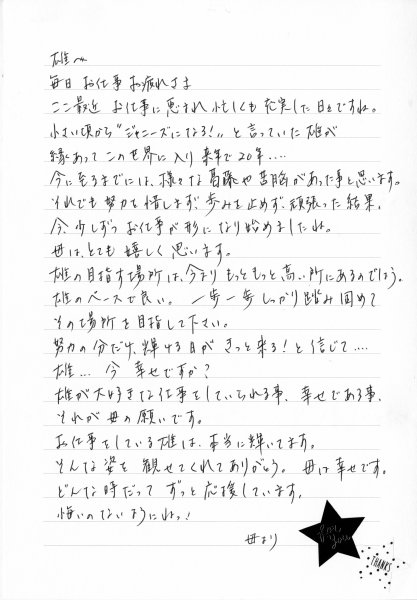 雄へ
毎日 お仕事 お疲れさま
ここ最近 お仕事に恵まれ 忙しくも 充実した日々ですね。
小さい頃から“ジャニーズになる!”と言っていた雄が
縁あって この世界に入り 来年で20年‥‥
今に至るまでには、様々な葛藤や苦悩があった事と思います。
それでも努力を惜しまず、歩みを止めず、頑張った結果、
今、少しずつ お仕事が形になり始めましたね。
母は、とても 嬉しく 思います。
雄の目指す場所は、今よりもっともっと高い所にあるのでしょう。
雄のペースで良い。 一歩一歩しっかり踏み固めて
その場所を目指して下さい。
努力の分だけ、輝ける日が きっと来る!と信じて‥‥
雄‥‥ 今 幸せですか?
雄が大好きな仕事をしていられる事、幸せである事、
それが母の願いです。
お仕事をしている雄は、本当に輝いてます。
そんな姿を 観せてくれてありがとう。 母は幸せです。
どんな時だって ずっと応援しています。
悔いのないようにねっ!
母より
For You
THANKS